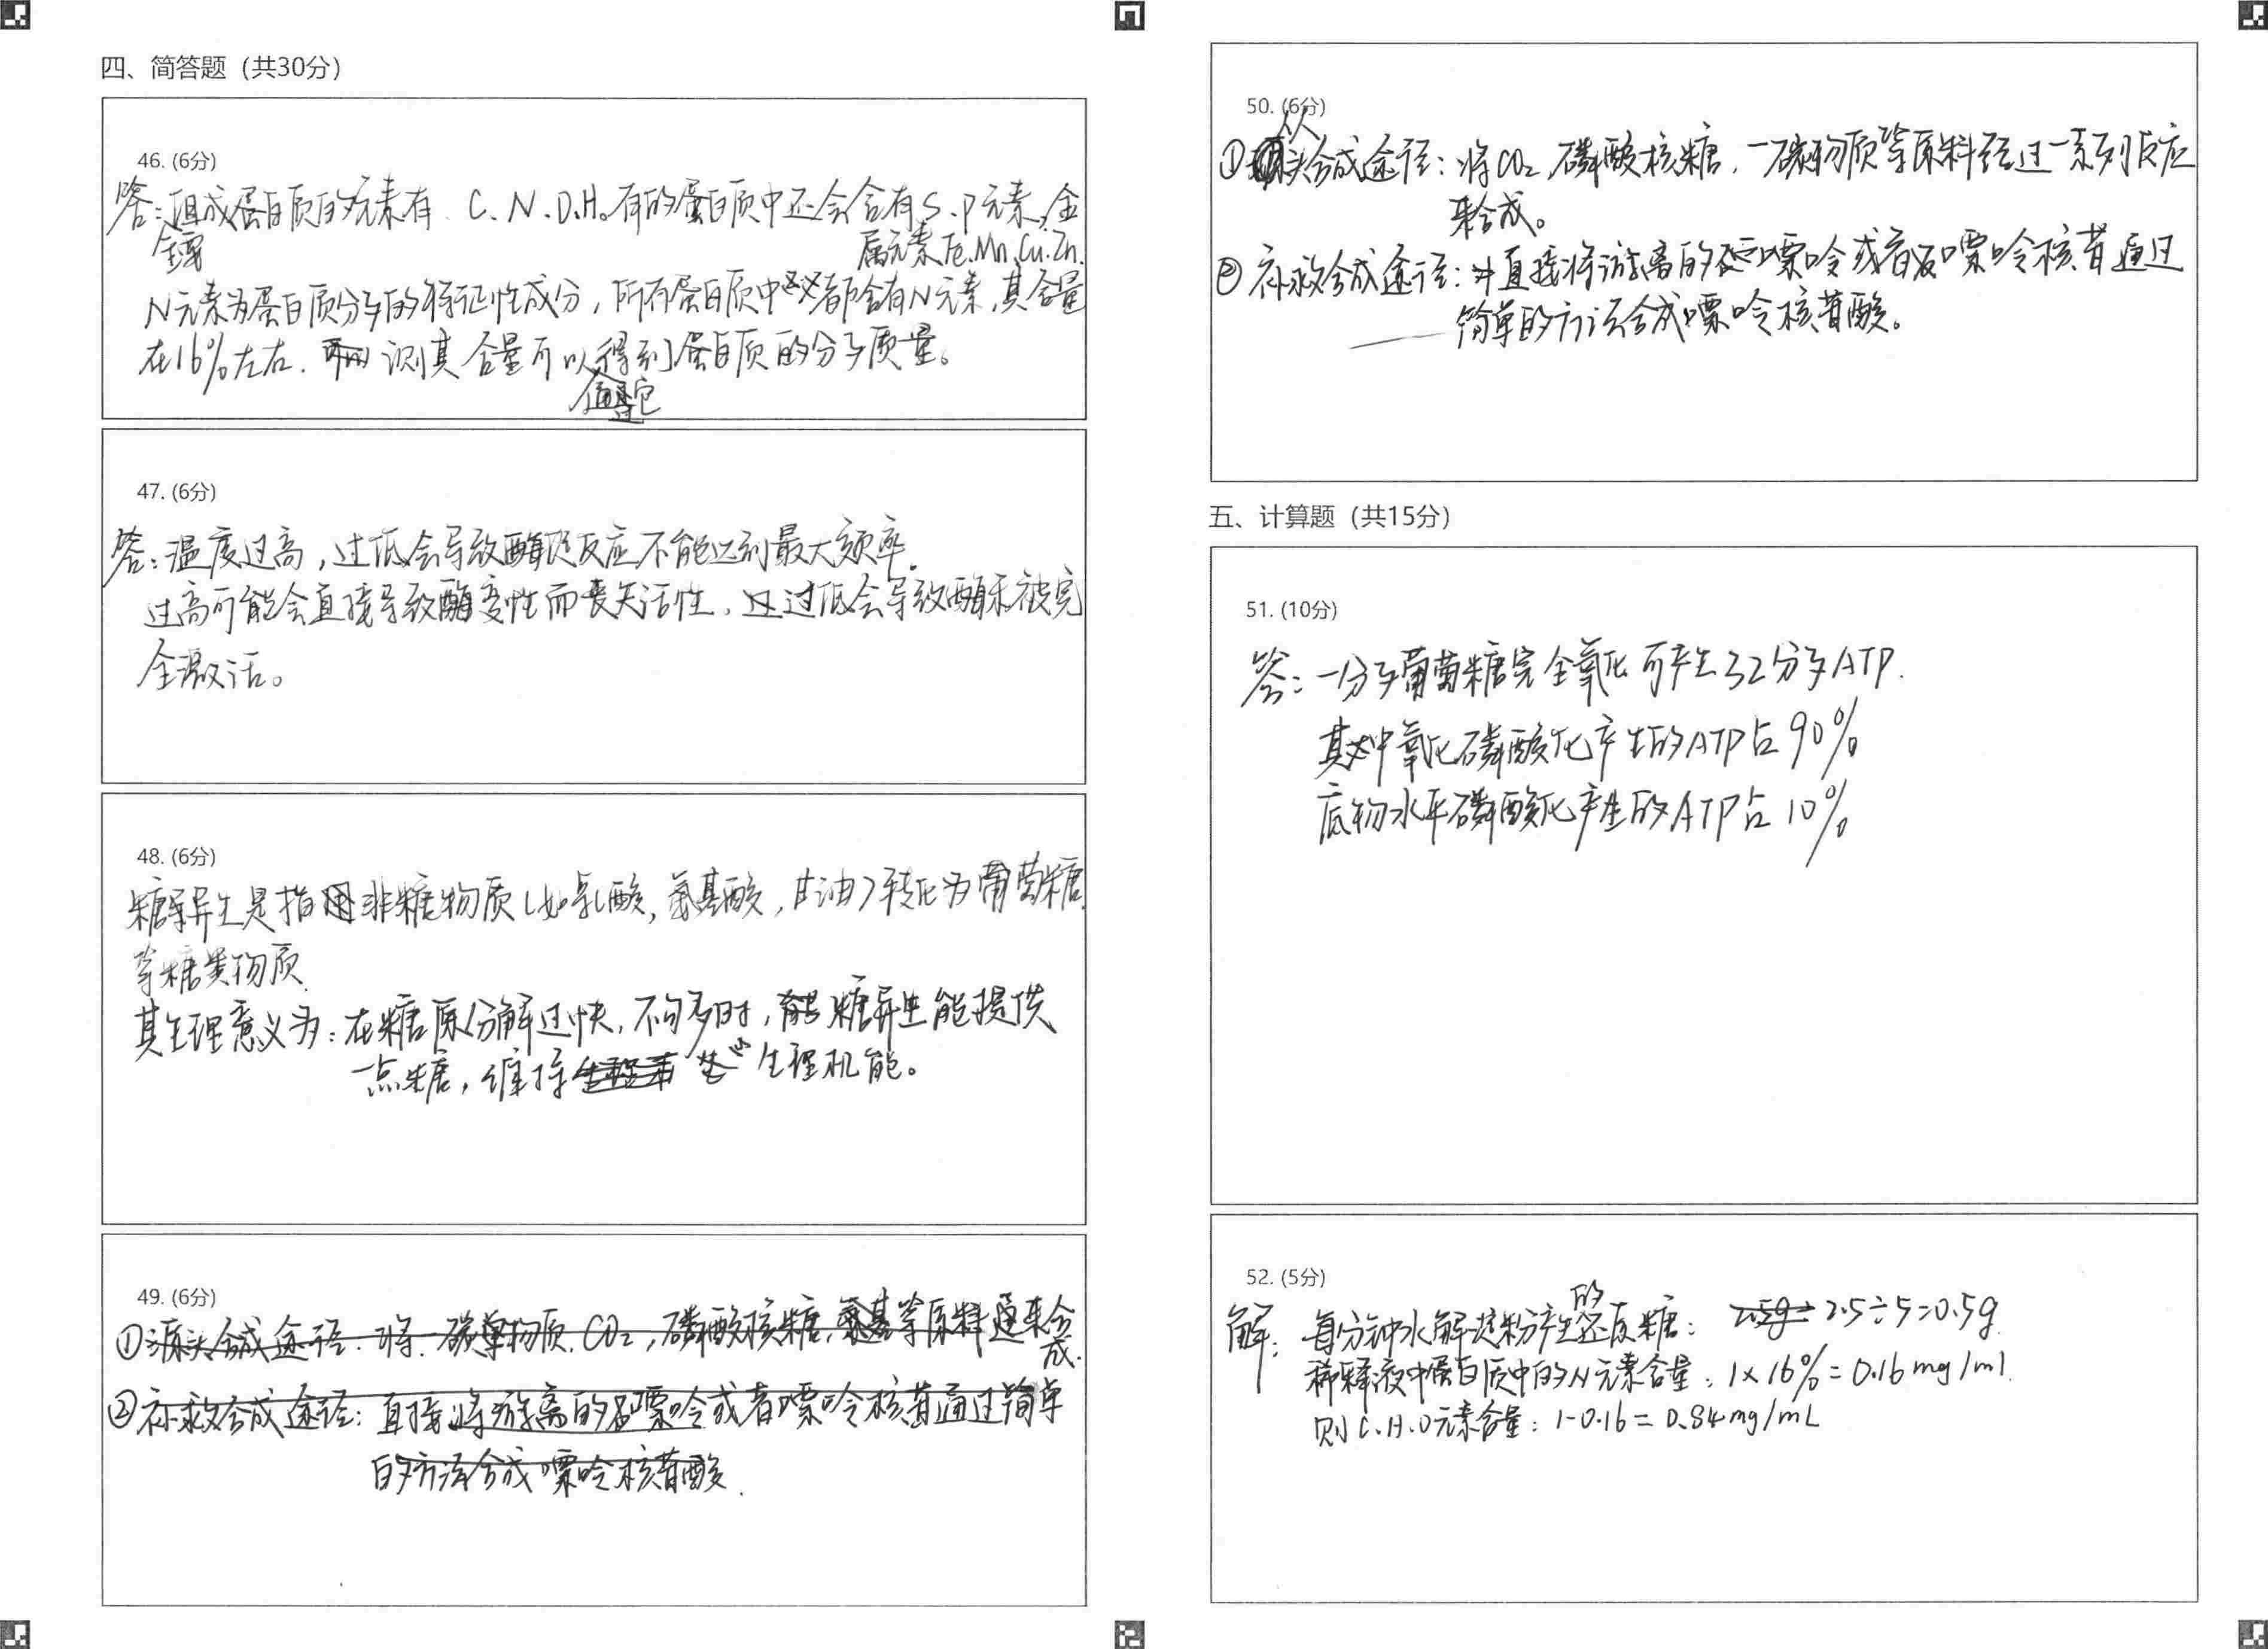 四、简答题（共30分）
46. (6分)
答：组成蛋白质的元素有 C、N、O、H。有的蛋白质中还会含有S、P元素，金
属元素Fe、Mn、Cu、Zn.
N元素为蛋白质分子的特征性成分，所有蛋白质中都含有N元素，其含量
在16%左右. 测其含量可以得到蛋白质的分子质量。
47. (6分)
答：温度过高，过低会导致酶促反应不能达到最大频率.
过高可能会直接导致酶变性而丧失活性，过低会导致酶未被完
全激活。
48. (6分)
糖异生是指非糖物质(如乳酸,氨基酸,甘油)转化为葡萄糖
等糖类物质.
其生理意义为：在糖原分解过快，不多时，糖异生能提供
一点糖，维持生理机能。
49. (6分)
①源头合成途径：将一碳单物质. CO₂，磷酸核糖，氨基等原料通来合
成.
②补救合成途径：直接将游离的嘌呤或者嘌呤核苷通过简单
的方法合成嘌呤核苷酸.
50. (6分)
①从头合成途径：将CO₂、磷酸核糖，一碳物质等原料经过一系列反应
来合成。
②补救合成途径：直接将游离的嘌呤或者嘌呤核苷通过
简单的方法合成嘌呤核苷酸。
五、计算题（共15分）
51. (10分)
答：一分子葡萄糖完全氧化可产生32分子ATP.
其中氧化磷酸化产生的ATP占90%
底物水平磷酸化产生的ATP占10%
52. (5分)
解：每分钟水解淀粉产生的还原糖：2.5÷5=0.5g.
稀释液中蛋白质中的N元素含量：1×16%=0.16mg/ml.
则C.H.O元素含量：1-0.16=0.84mg/mL